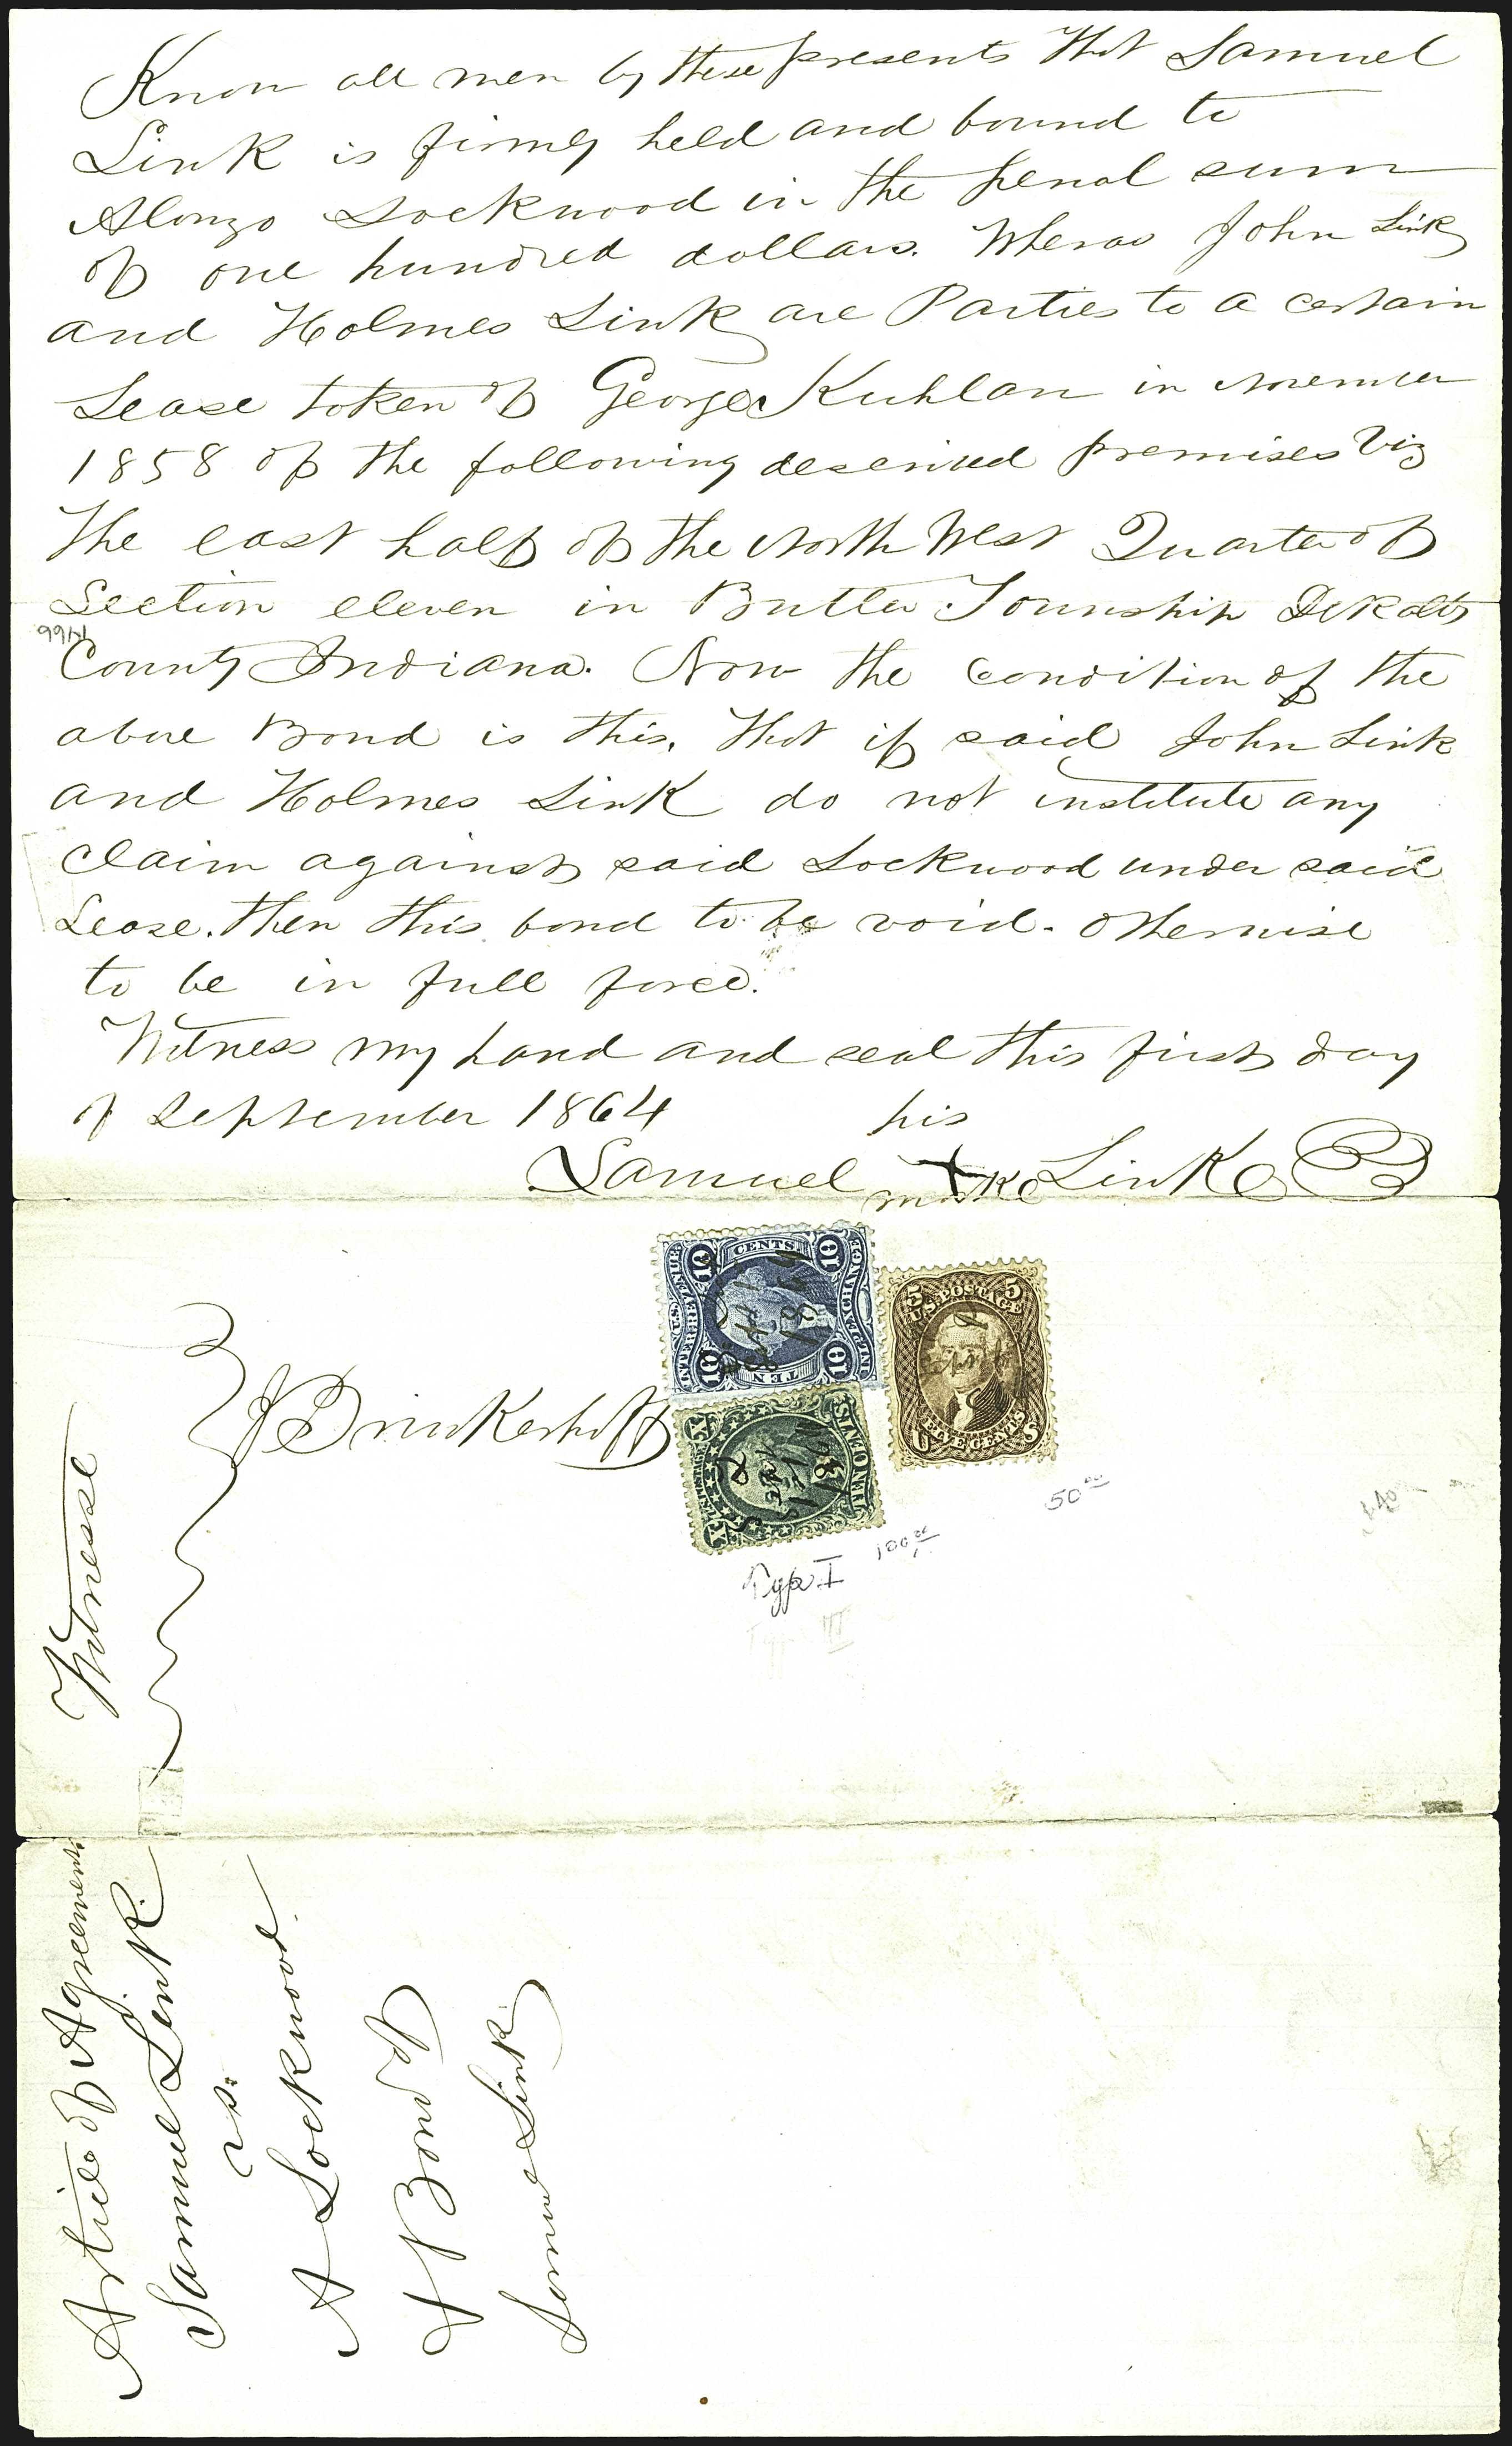 Know all men by these presents that Samuel
Link is firmly held and bound to
Alonzo Lockwood in the penal sum
of one hundred dollars. Wheras John Link
and Holmes Link are Parties to a certain
Lease token of George Kuhlan in November
1858 of the following described premises Viz
The east half of the North West Quarter of
Section eleven in Butler Township DeKalb
County Indiana. Now the condition of the
above Bond is this, That if said John Link
and Holmes Link do not institute any
claim against said Lockwood under said
Lease. then this bond to be void. otherwise
to be in full force.
Witness my hand and seal this first day
of September 1864
his
Samuel X Link
marke
U.S. INTER. REV. TEN CENTS INLAND EXCHANGE 10 10 10 10
Sept 1 1864
5 U.S. POSTAGE 5
FIVE CENTS
U S
U.S. POSTAGE TEN CENTS X X
Sept 1 1864
J Brinkerhoff
Witnesse
50 00
100 00
Type I
Type III
Article of Agreement
Samuel Link
vs.
A Lockwood
& Bond of
Samuel Link